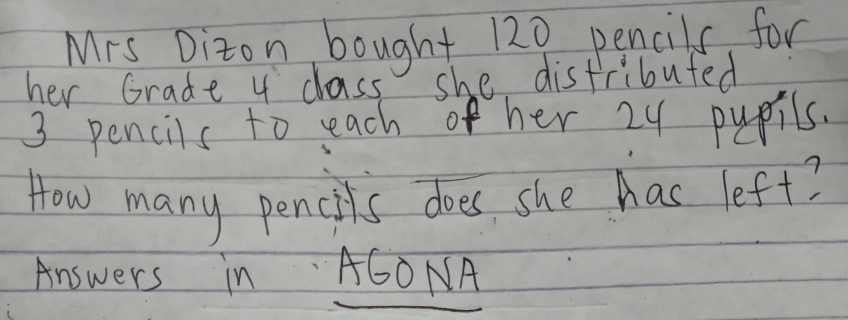 Mrs Dizon bought 120 pencils for
her Grade 4 class she distributed
3 pencils to each of her 24 pupils.
How many pencils does she has left?
Answers in AGONA